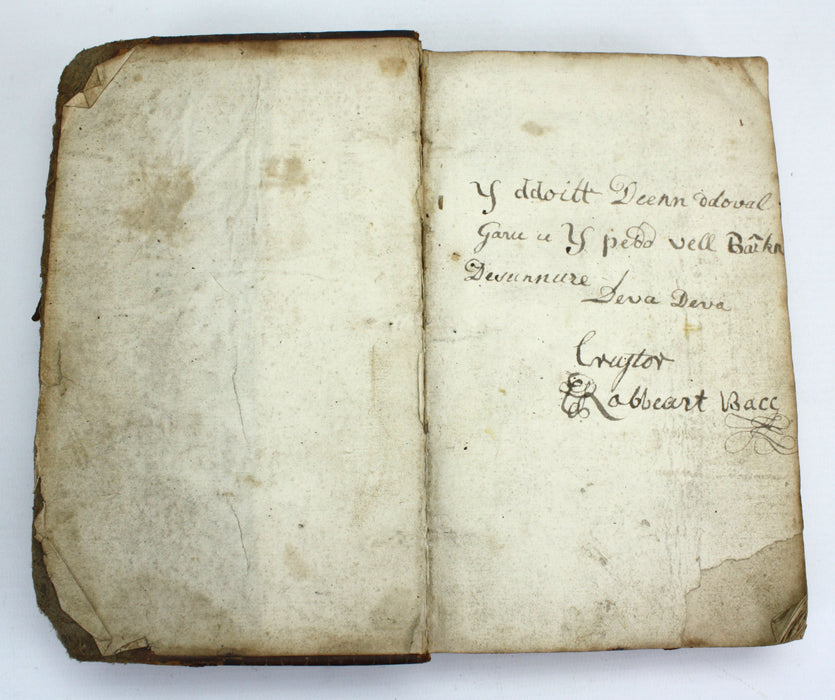 Y ddoitt Deenn ddoval
Garu u Y pedd vell
Desunnure
Deva Deva
Cruptor
Robbeart Bacc